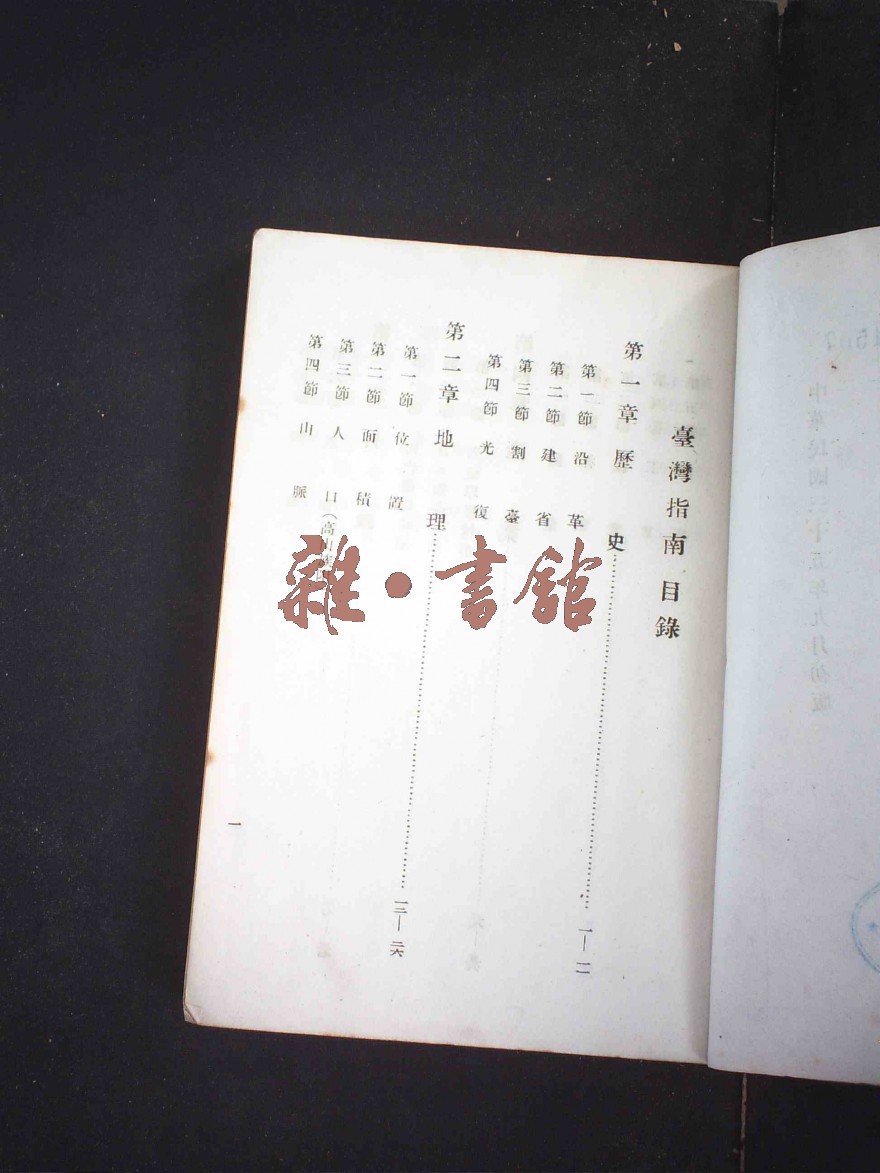 臺灣指南目錄
第一章歷史
一—一二
第一節沿革
第二節建省
第三節割臺
第四節光復
第二章地理
一三—二六
第一節位置
第二節面積
第三節人口(高山族
第四節山脈
一
雜·書舘
中華民國三十五年九月初版